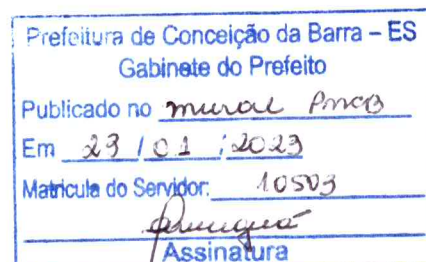 Prefeitura de Conceição da Barra – ES
Gabinete do Prefeito
Publicado no mural PMCB
Em 23 / 01 / 2023
Matricula do Servidor: 10503
Assinatura